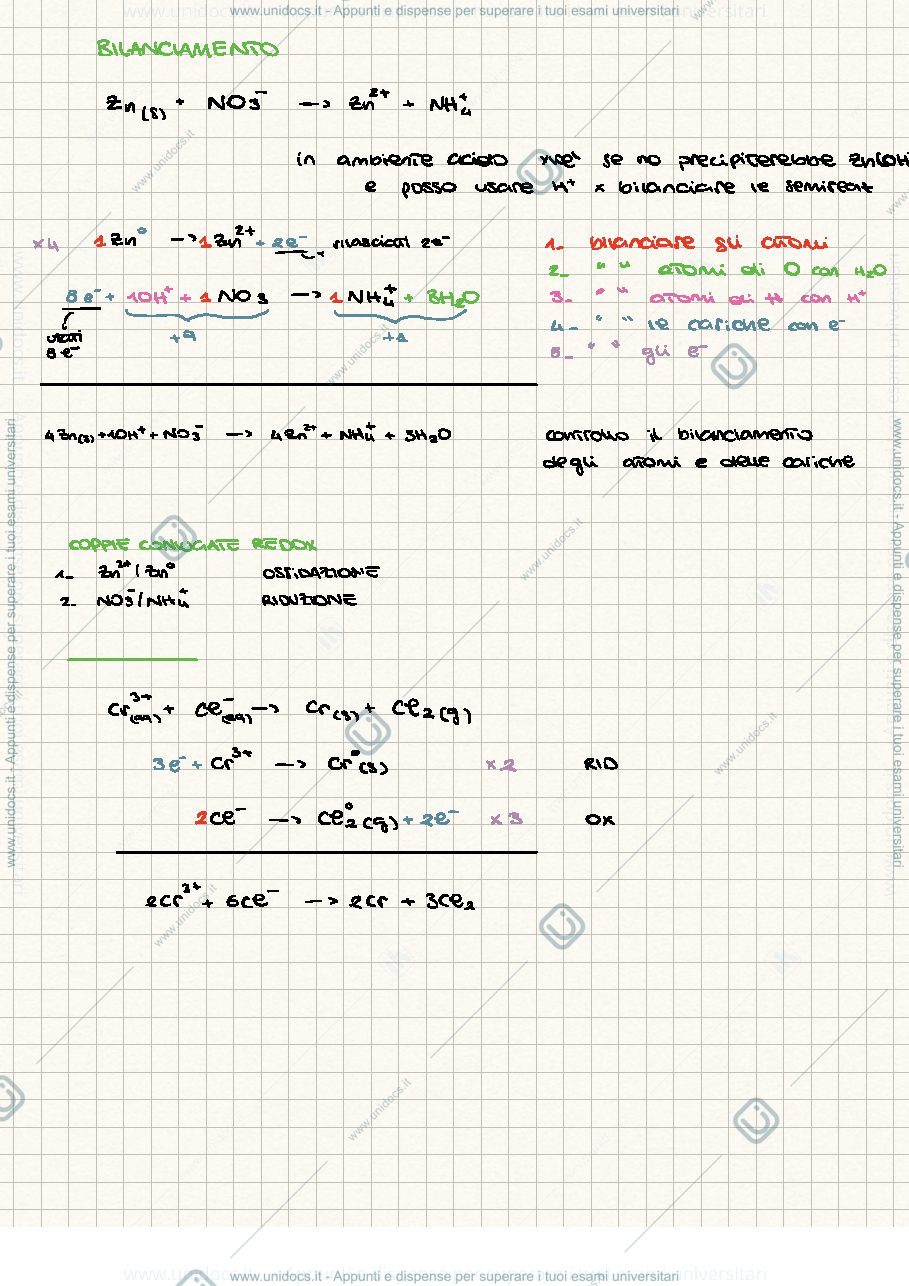 www.unidocs.it - Appunti e dispense per superare i tuoi esami universitari
BILANCIAMENTO
Zn(s) + NO3⁻ → Zn²⁺ + NH4⁺
in ambiente acido se no precipiterebbe Zn(OH
e posso usare H⁺ x bilanciare le semireat
x4 1Zn⁰ → 1Zn²⁺ + 2e⁻ rilasciati 2e⁻
8e⁻ + 10H⁺ + 1NO3 → 1NH4⁺ + 3H2O
usati +9 +1
8e⁻
1- bilanciare gli atomi
2- " " atomi di O con H2O
3- " " atomi di H con H⁺
4- " " le cariche con e⁻
5- " " gli e⁻
4Zn(s) + 10H⁺ + NO3⁻ → 4Zn²⁺ + NH4⁺ + 3H2O
controllo il bilanciamento
degli atomi e delle cariche
COPPIE CONIUGATE REDOX
1- Zn²⁺/Zn⁰ OSSIDAZIONE
2- NO3⁻/NH4⁺ RIDUZIONE
Cr³⁺(aq) + Cl⁻(aq) → Cr(s) + Cl2(g)
3e⁻ + Cr³⁺ → Cr⁰(s) x2 RID
2Cl⁻ → Cl2⁰(g) + 2e⁻ x3 OX
2Cr³⁺ + 6Cl⁻ → 2Cr + 3Cl2
www.unidocs.it - Appunti e dispense per superare i tuoi esami universitari